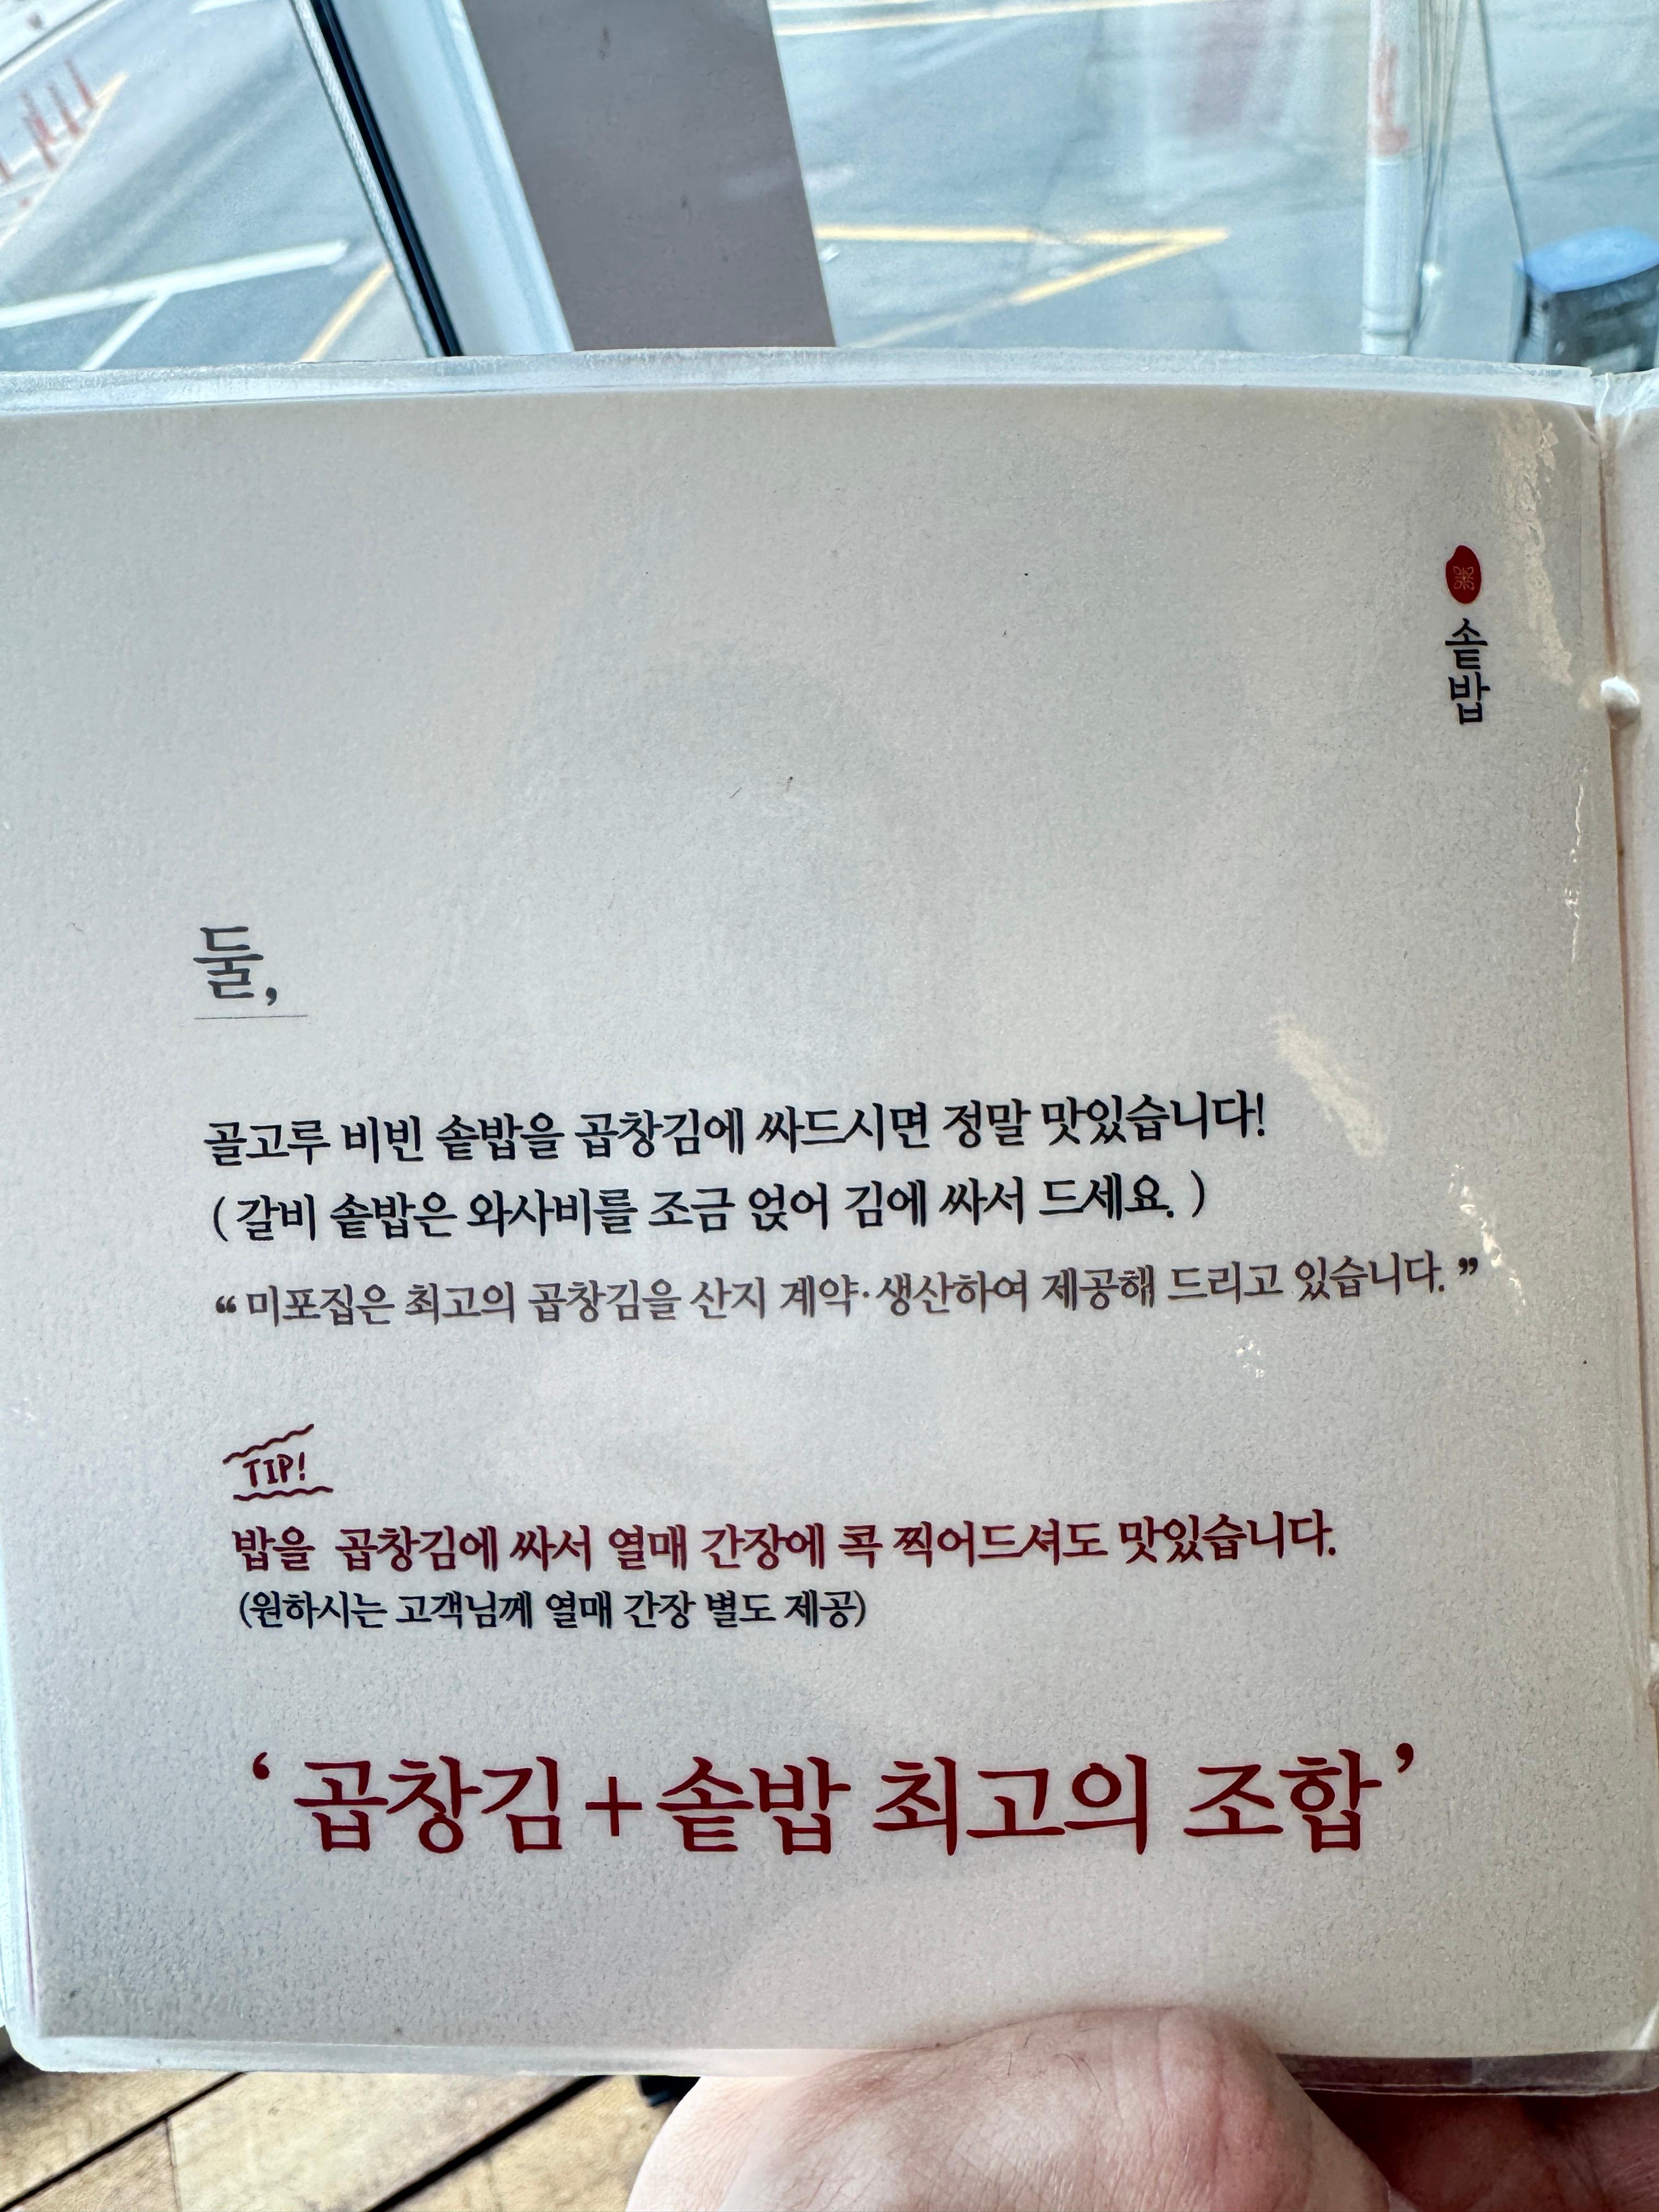 솥밥
둘,
골고루 비빈 솥밥을 곱창김에 싸드시면 정말 맛있습니다!
( 갈비 솥밥은 와사비를 조금 얹어 김에 싸서 드세요. )
“ 미포집은 최고의 곱창김을 산지 계약·생산하여 제공해 드리고 있습니다. ”
TIP!
밥을 곱창김에 싸서 열매 간장에 콕 찍어드셔도 맛있습니다.
(원하시는 고객님께 열매 간장 별도 제공)
‘ 곱창김+솥밥 최고의 조합 ’